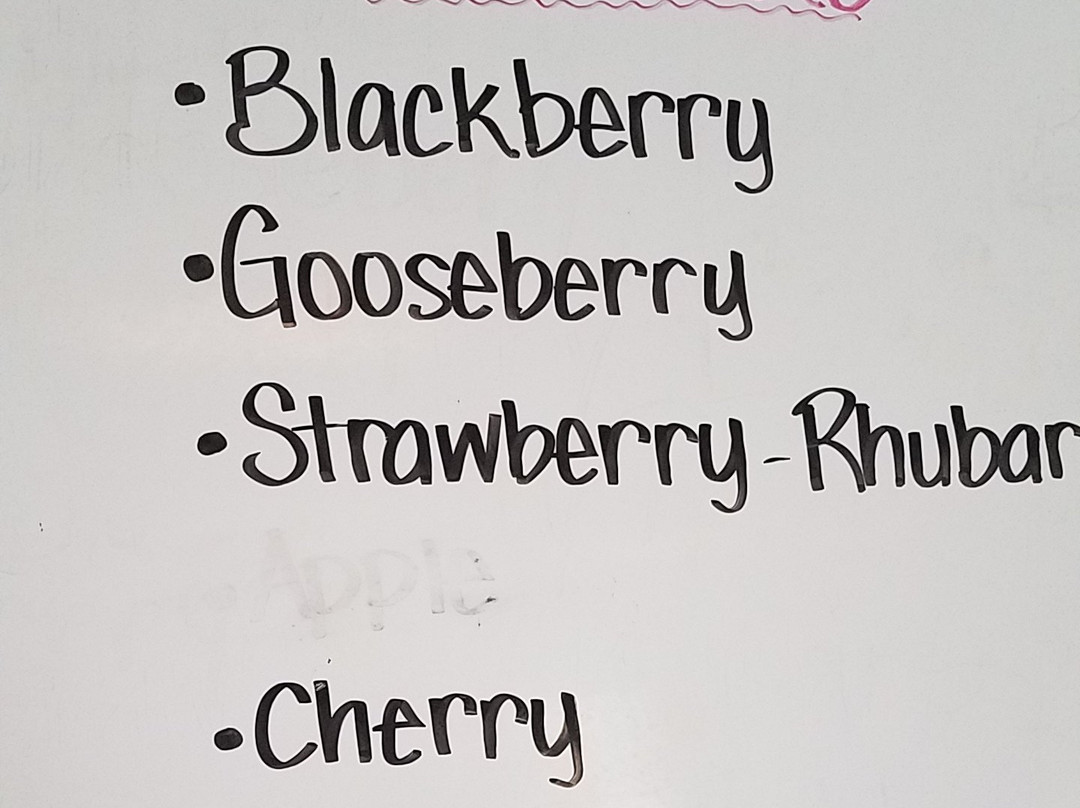 • Blackberry
• Gooseberry
• Strawberry-Rhubar
• Apple
• Cherry